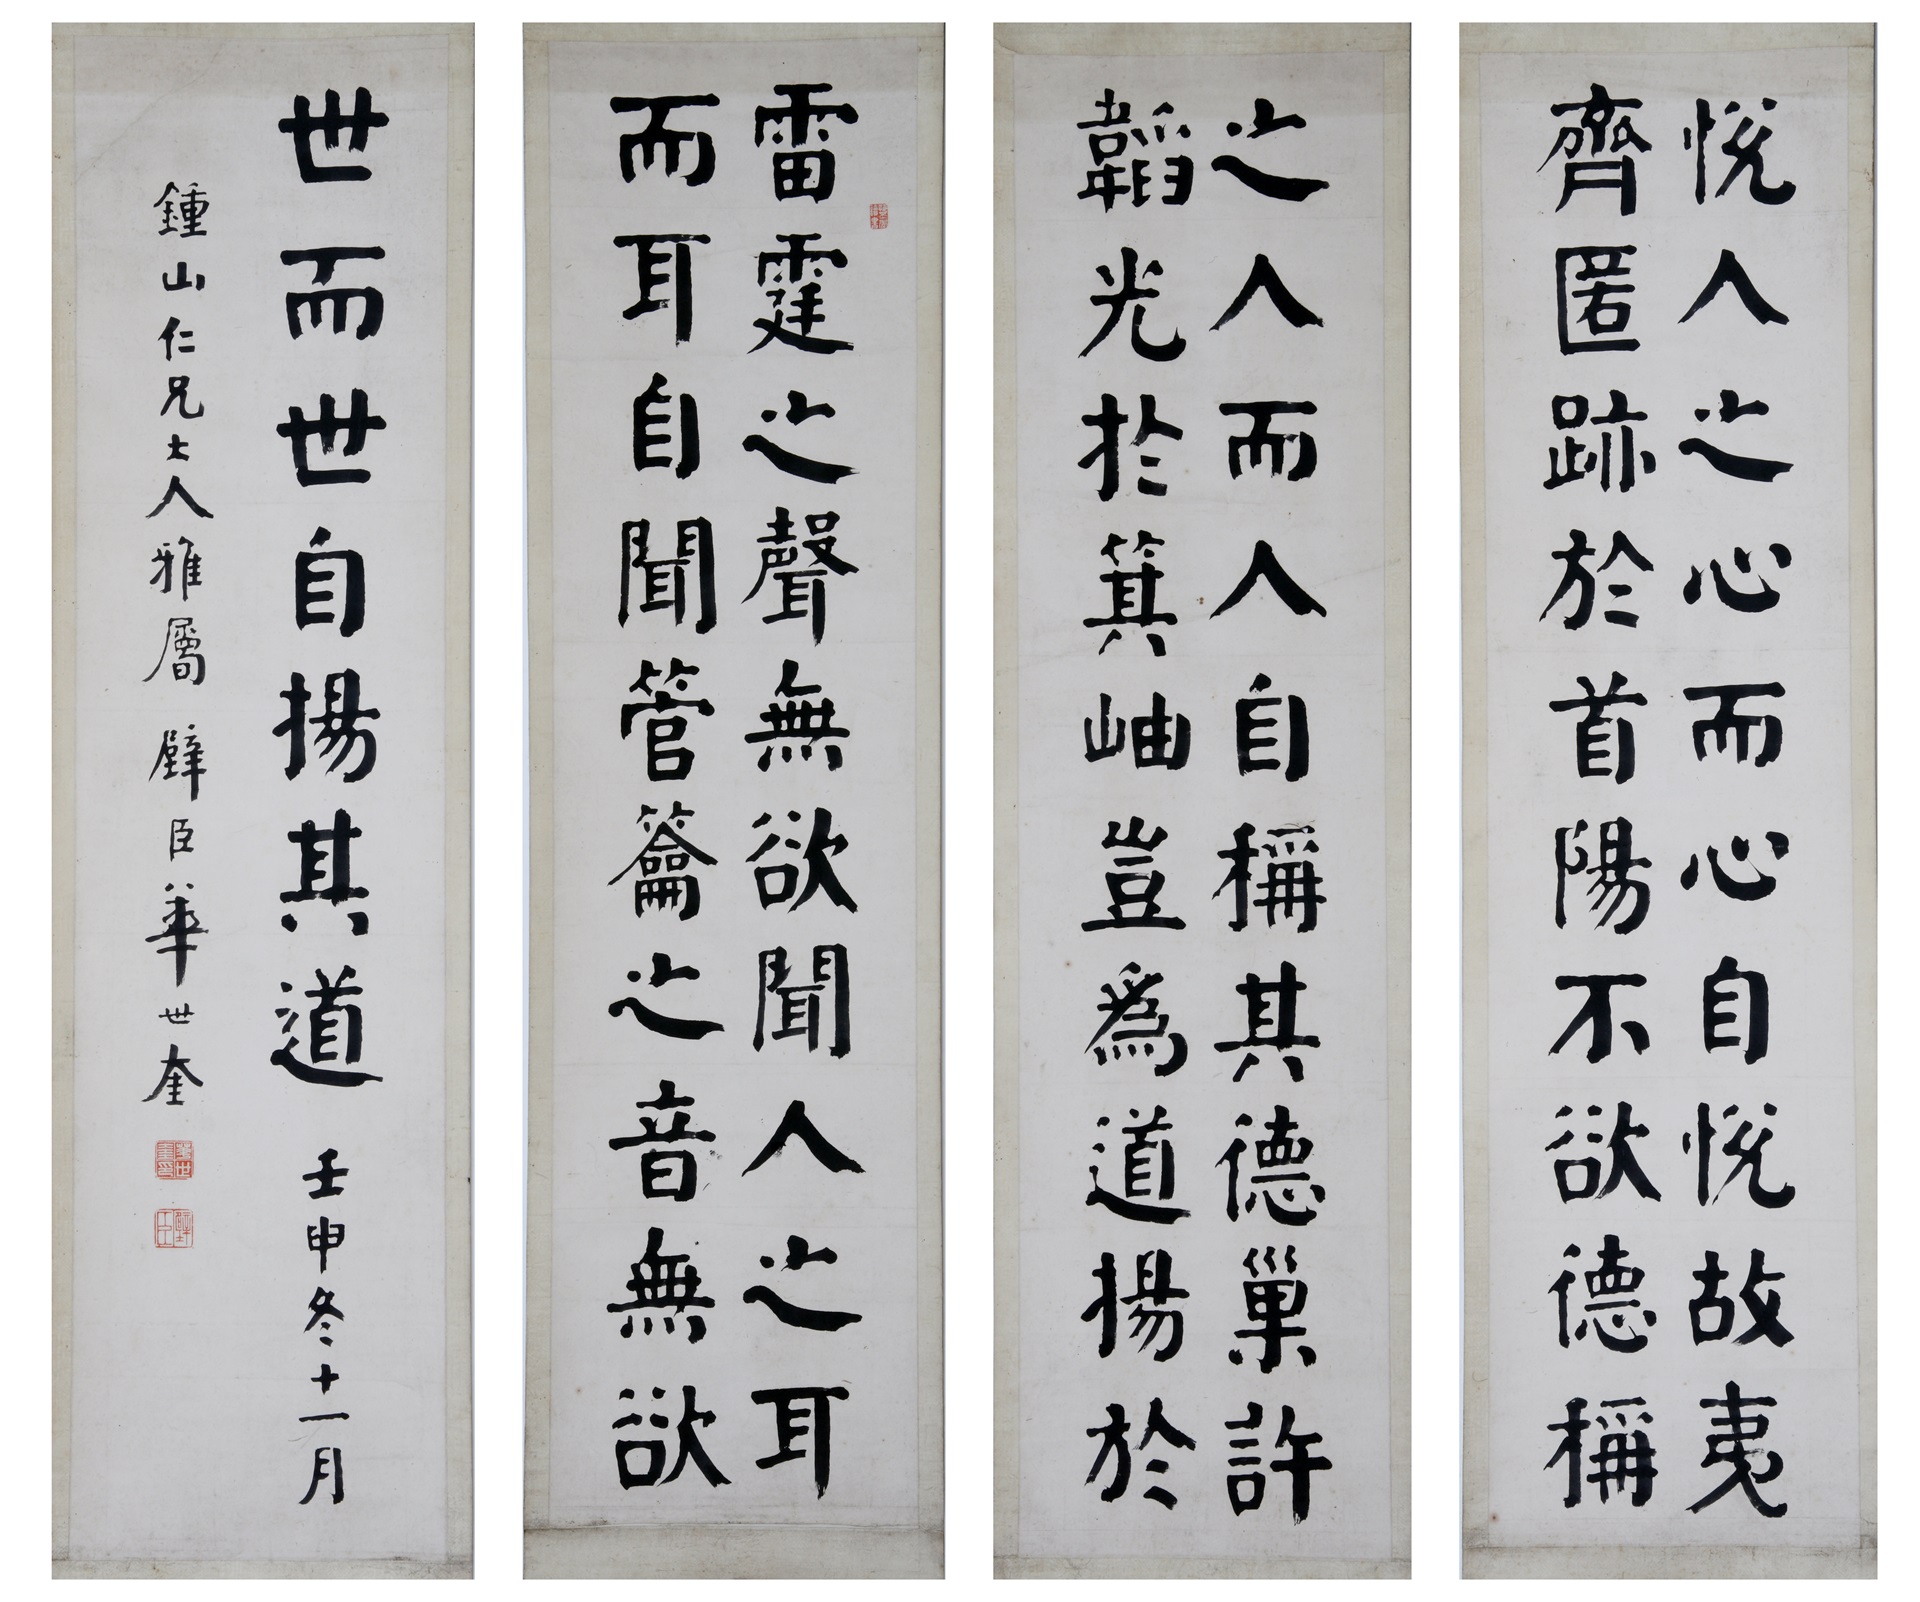 雷霆之聲無欲聞人之耳
而耳自聞管籥之音無欲
悅人之心而心自悅故夷
齊匿跡於首陽不欲德稱
之人而人自稱其德巢許
韜光於箕岫豈爲道揚於
世而世自揚其道 壬申冬十一月
鍾山仁兄大人雅屬 璧臣華世奎